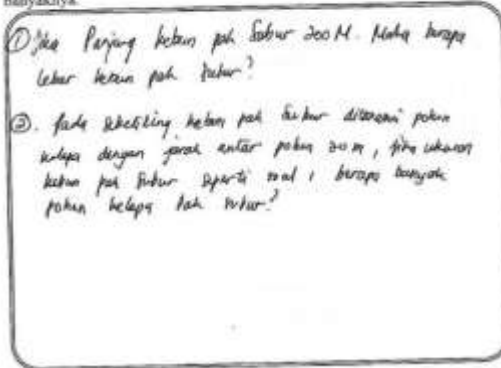 banyaknya.
① Jika Panjang kebun pak Subur 200 M. Maka berapa
lebar kebun pak Subur?
②. Pada sekeliling kebun pak Subur ditanami pohon
kelapa dengan jarak antar pohon 20 m, jika ukuran
kebun pak Subur seperti soal 1, berapa banyak
pohon kelapa Pak Subur?